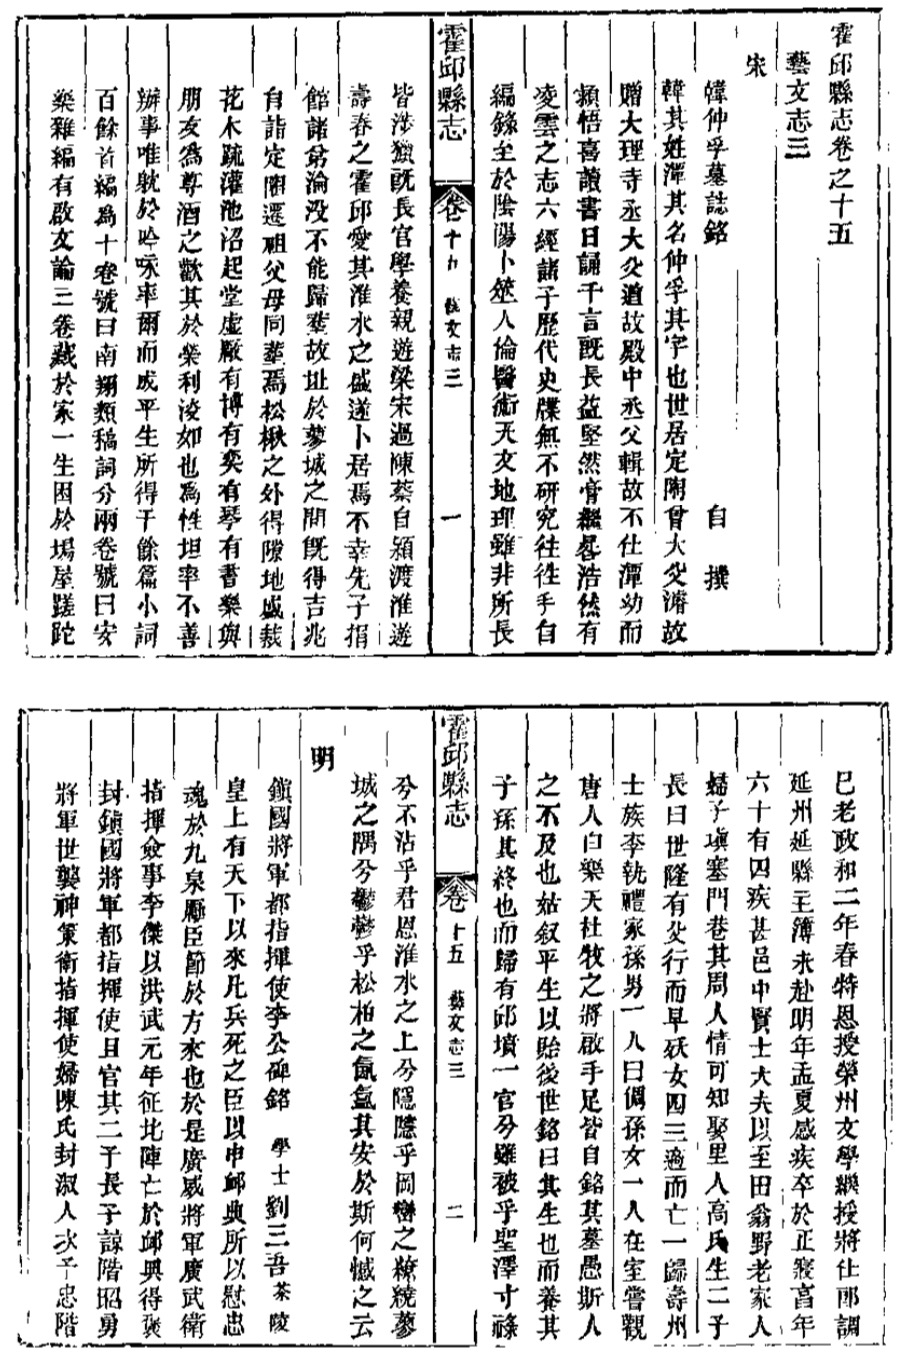 霍邱縣志卷之十五
藝文志三
宋
韓仲孚墓誌銘 自撰
韓其姓潭其名仲孚其字也世居定陶曾大父濬故
贈大理寺丞大父遒故殿中丞父輯故不仕潭幼而
穎悟喜讀書日誦千言既長益堅然膏繼晷浩然有
凌雲之志六經諸子歷代史牒無不研究往往手自
編錄至於陰陽卜筮人倫醫術天文地理雖非所長
霍邱縣志 卷十五 藝文志三 一
皆涉獵既長官學養親遊梁宋過陳蔡自潁渡淮遊
壽春之霍邱愛其淮水之盛遂卜居焉不幸先子捐
館諸弟淪没不能歸葬故址於蓼城之間既得吉兆
自詣定陶遷祖父母同葬焉松楸之外得隙地盛栽
花木疏灌池沼起堂虛厰有博有奕有琴有書樂與
朋友為尊酒之歡其於榮利淩如也為性坦率不善
辦事唯躭於吟咏率爾而成平生所得千餘篇小詞
百餘首編爲十卷號曰南翔類稿詞分兩卷號曰安
樂雜編有啟文論三卷藏於家一生困於塲屋蹉跎
巳老政和二年春特恩授榮州文學繼授將仕郎調
延州延縣主簿未赴明年孟夏感疾卒於正寢享年
六十有四疾甚邑中賢士大夫以至田翁野老家人
婦子塡塞門巷其周人情可知娶里人高氏生二子
長曰世隆有父行而早殀女四三適而亡一歸壽州
士族李執禮家孫男一人曰倜孫女一人在室嘗觀
唐人白樂天杜牧之將啟手足皆自銘其墓愚斯人
之不及也姑叙平生以貽後世銘曰其生也而養其
子孫其終也而歸有邱墳一官兮雖被乎聖澤寸祿
霍邱縣志 卷十五 藝文志三 二
兮不沾乎君恩淮水之上兮隱隱乎岡巒之繚繞蓼
城之隅兮鬱鬱乎松柏之氤氳其安於斯何憾之云
明
鎮國將軍都指揮使李公碑銘 學士劉三吾茶陵
皇上有天下以來凡兵死之臣以申卹典所以慰忠
魂於九泉勵臣節於方來也於是廣威將軍廣武衛
指揮僉事李傑以洪武元年征北陣亡於卹典得褒
封鎮國將軍都指揮使且官其二子長子諒階昭勇
將軍世襲神策衛指揮使婦陳氏封淑人次子忠階